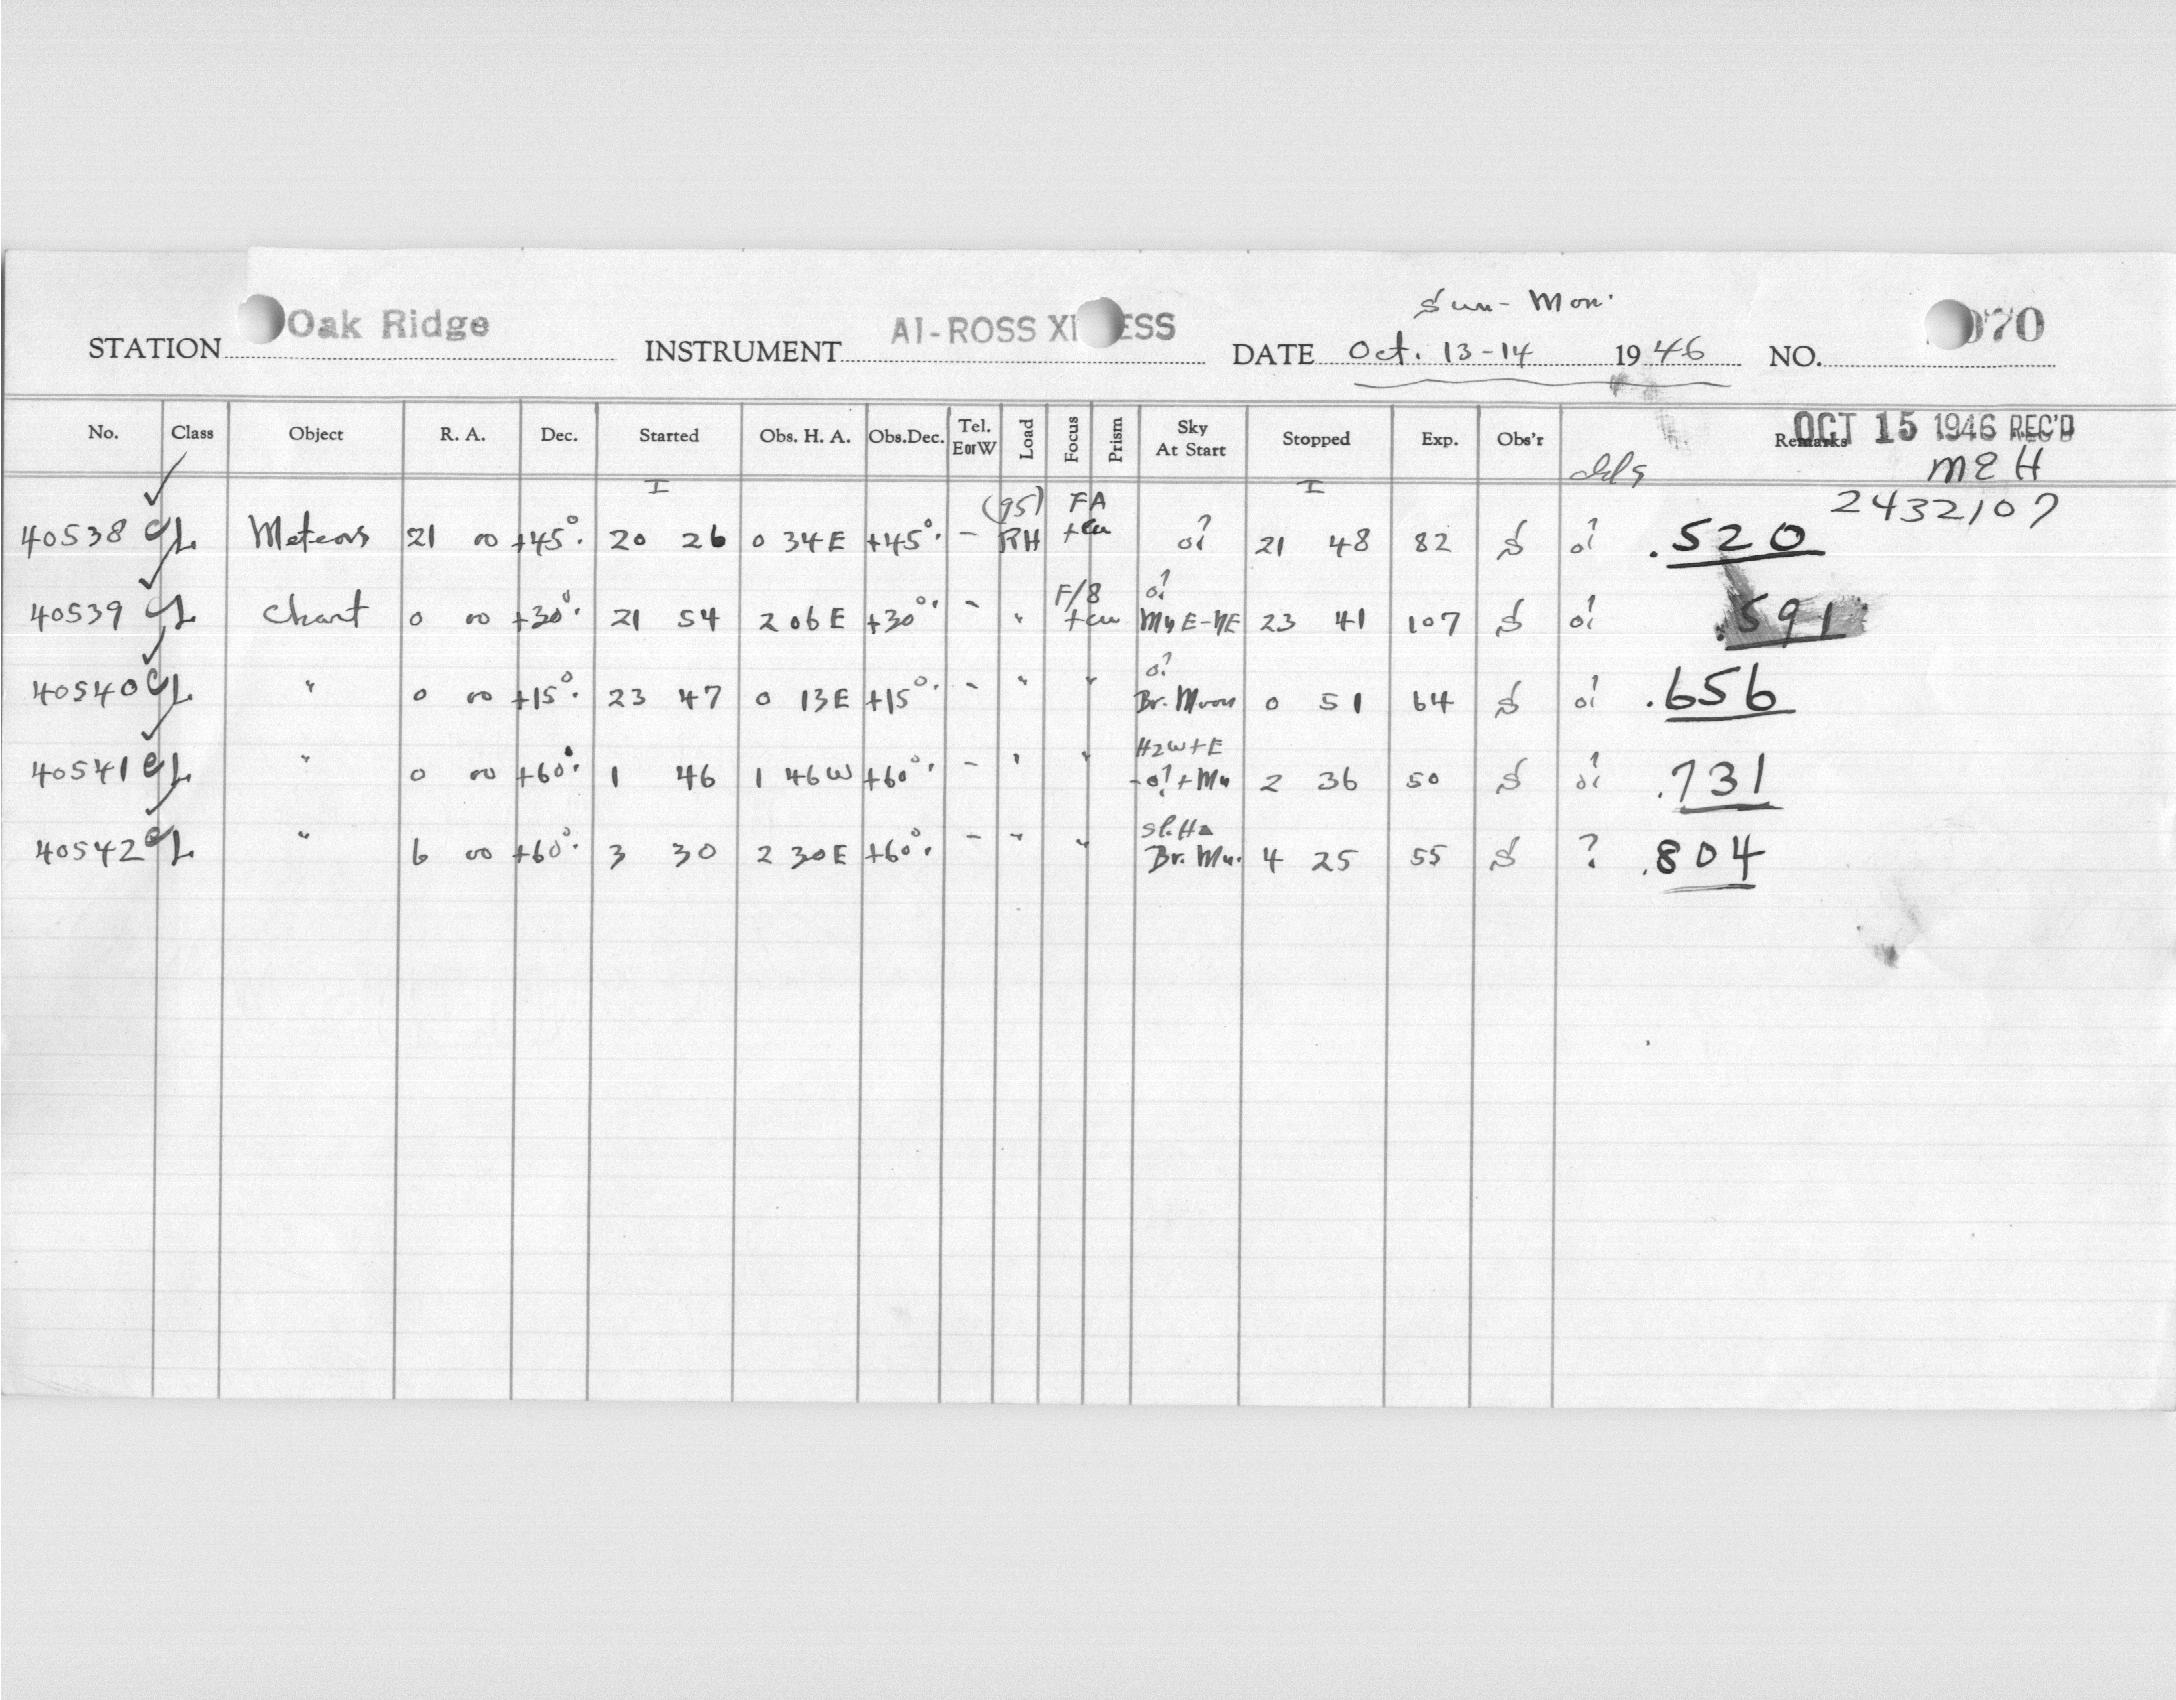 Sun - Mon.
STATION Oak Ridge INSTRUMENT AI-ROSS DATE Oct. 13-14 1946 NO. 070
No. Class Object R. A. Dec. Started Obs. H. A. Obs.Dec. Tel. E or W Load Focus Prism Sky At Start Stopped Exp. Obs'r Remarks
OCT 15 1946 REC'D
MEH
I I 2432107
(95) FA
40538 CL Meteors 21 00 +45° 20 26 0 34E +45° - RH 21 48 82 S .520
F/8
40539 CL Chart 0 00 +30° 21 54 2 06E +30° - " Mn E-NE 23 41 107 S .591
40540 CL " 0 00 +15° 23 47 0 13E +15° - " " Br. Moon 0 51 64 S .656
Hz W+E
40541 CL " 0 00 +60° 1 46 1 46W +60° - " " + Mn 2 36 50 S .731
Sl. Hz
40542 CL " 6 00 +60° 3 30 2 30E +60° - " " Br. Mn. 4 25 55 S ? .804